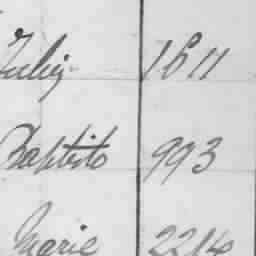 Julien 1811
Baptiste 993
Marie 2214